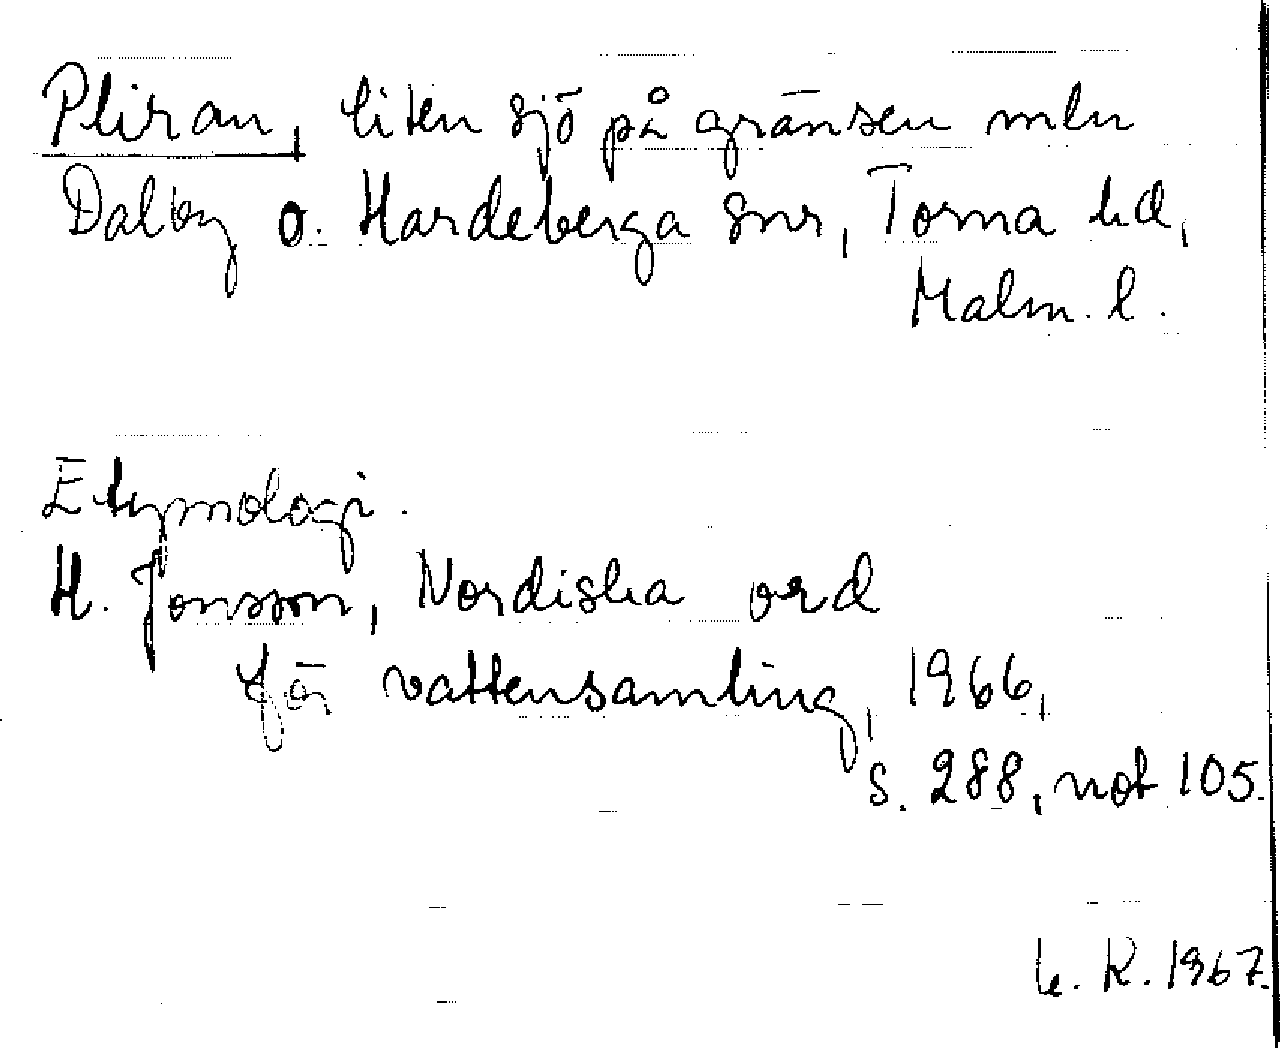 Pliran, liten sjö på gränsen mln
Dalby o. Hardeberga snr, Torna hd,
Malm. l.
Etymologi.
H. Jonsson, Nordiska ord
för vattensamling, 1966,
s. 288, not 105.
K. R. 1967.